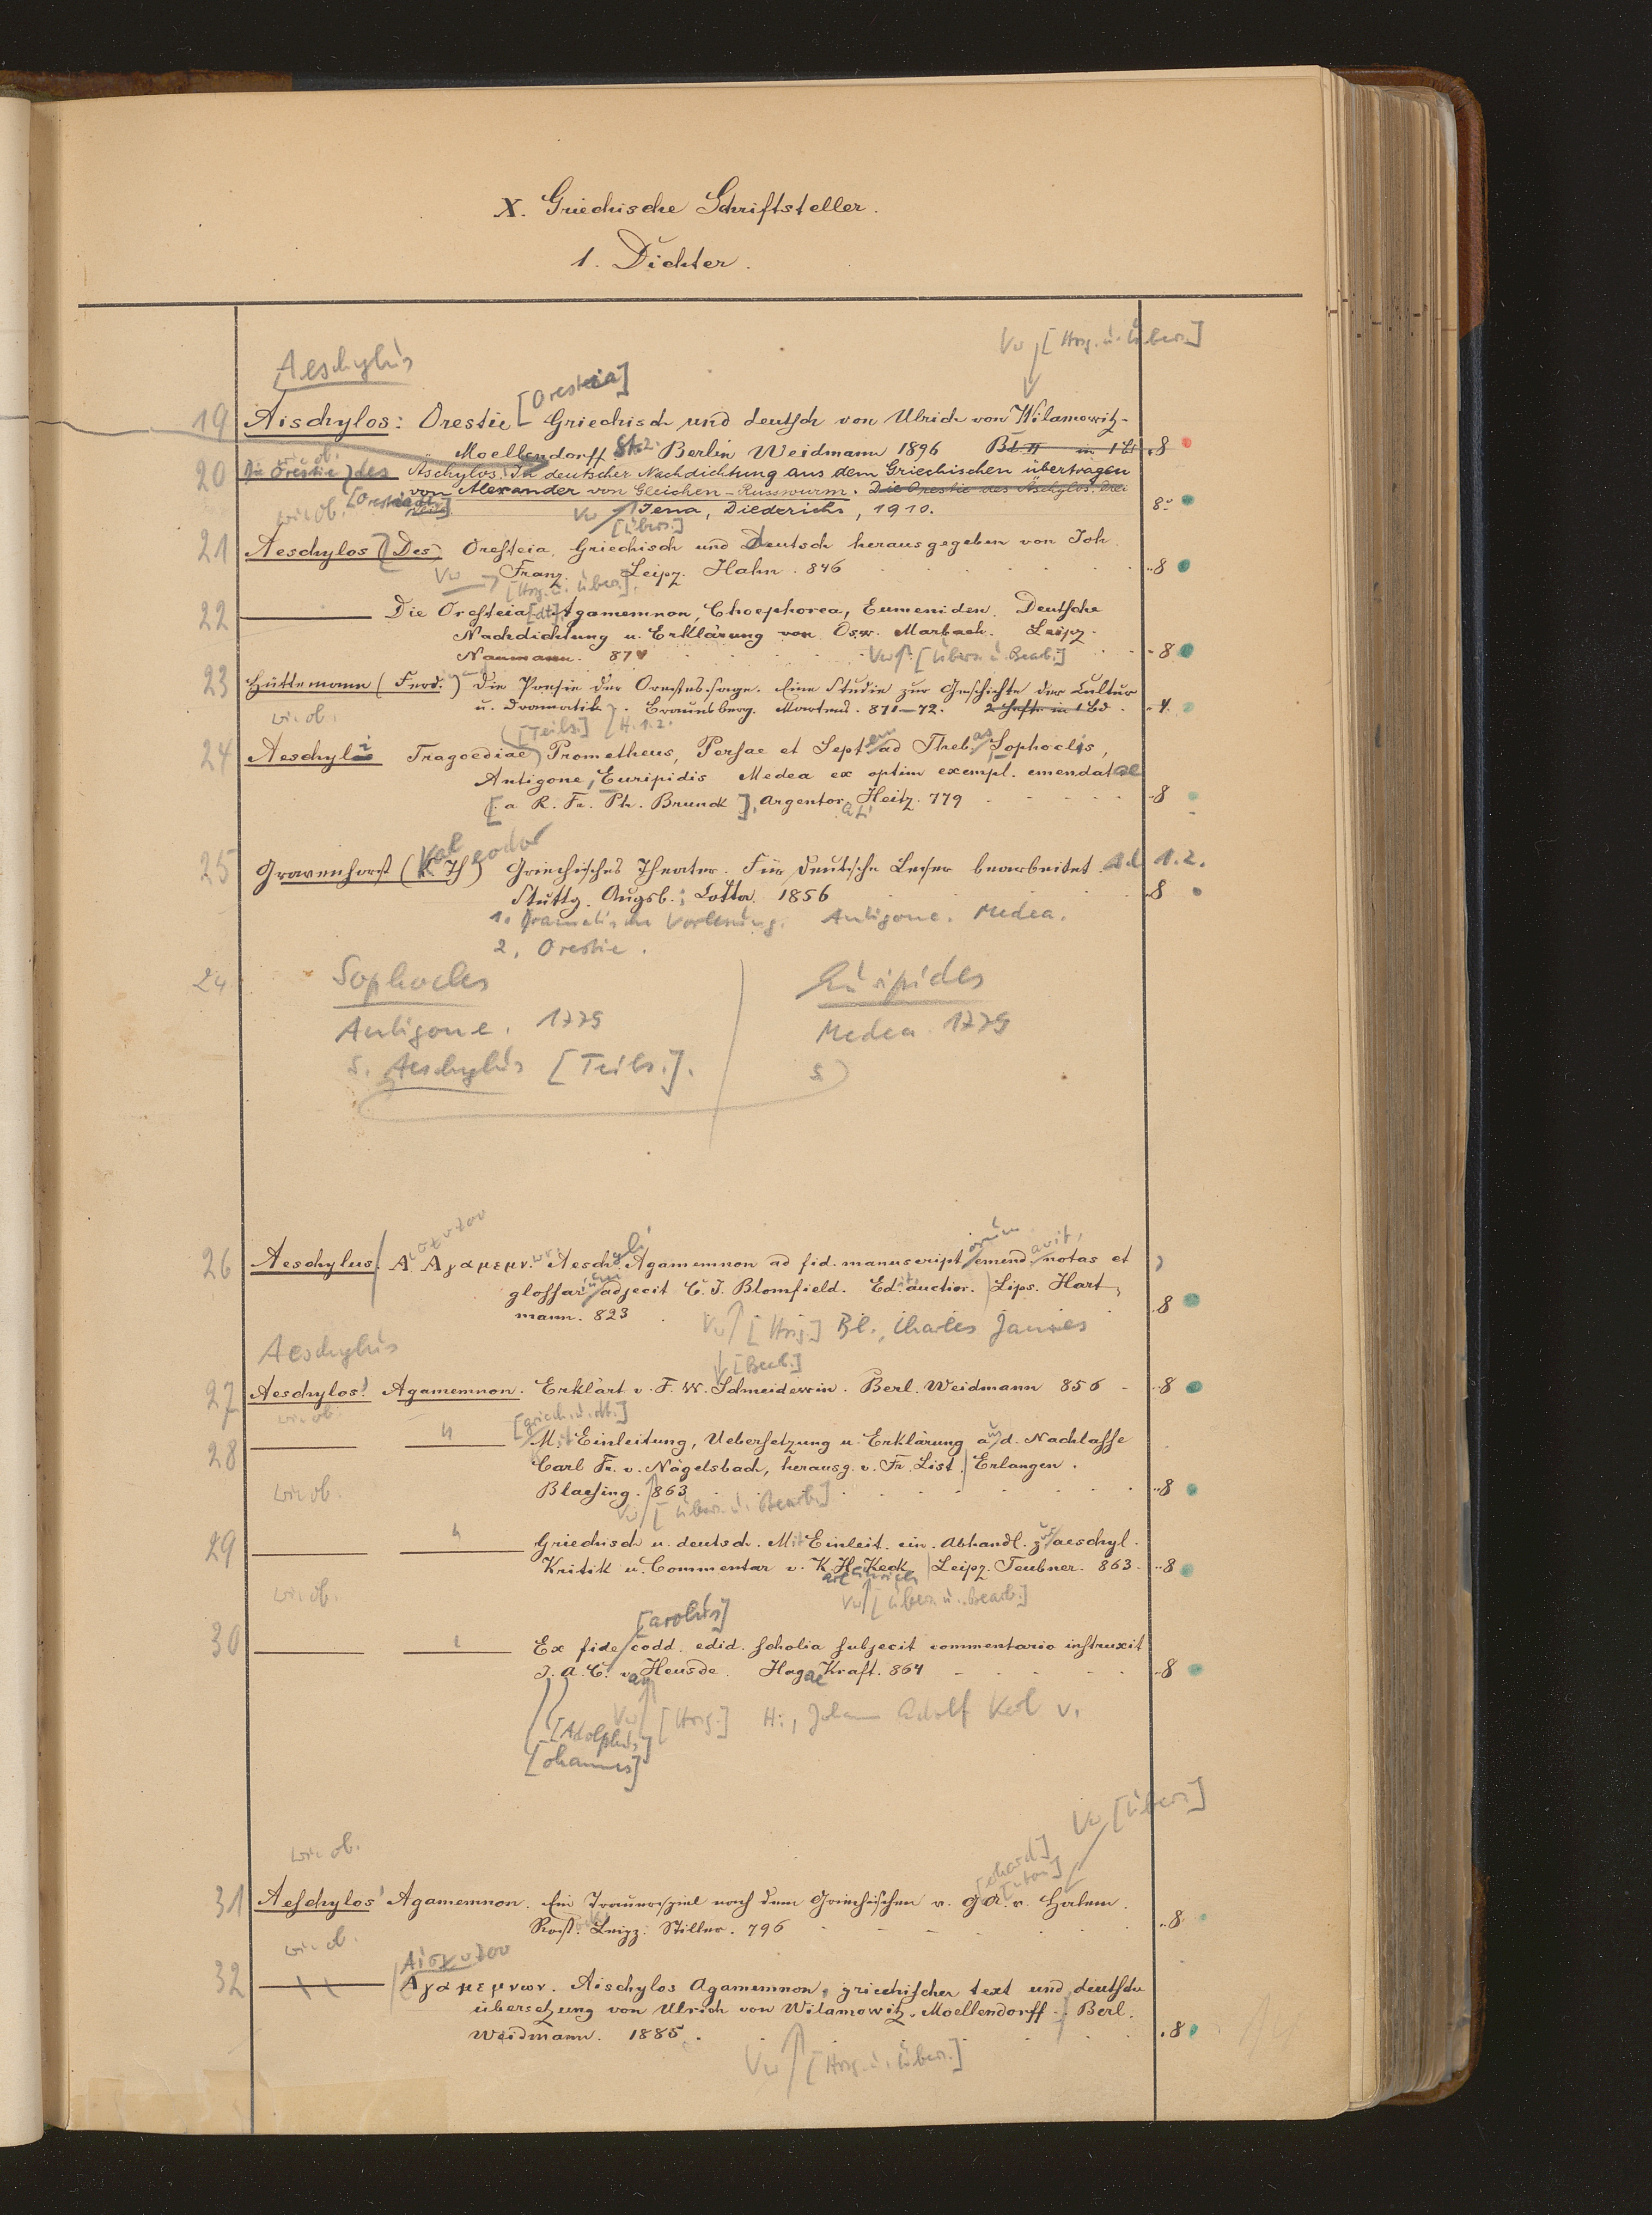 X. Griechische Schriftsteller.
1. Dichter.
Vw [Hrsg. u. Übers.]
Aeschylus
[Oresteia]
19 Aischylos: Orestie Griechisch und deutsch von Ulrich von Wilamowitz-
Moellendorff St. 2. Berlin Weidmann 1896 Bd II in 1 Bd 8
wie ob.
20 Die Orestie des Äschylos. In deutscher Nachdichtung aus dem Griechischen übertragen
von Alexander von Gleichen-Russwurm. Die Orestie des Äschylos. Drei
wie ob. [Oresteia dt.] Vw [Übers.] Jena, Diederichs, 1910. 8°
21 Aeschylos (Des) Oresteia. Griechisch und Deutsch herausgegeben von Joh.
Franz. Leipz. Hahn. 846 8
Vw [Hrsg. u. Übers.]
22 Die Oresteia [dt.] Agamemnon, Choephorea, Eumeniden. Deutsche
Nachdichtung u. Erklärung von Osw. Marbach. Leipz.
Naumann. 87 Vw [Übers. u. Bearb.] 8
23 Hüttemann (Ferd.) Die Poesie der Orestes-sage. Eine Studie zur Geschichte der Cultur
wie ob. u. Dramatik. Braunsberg. Martens. 871–72. 2 Hefte in 1 Bd. 4.
[Teils.] H. 1.2.
24 Aeschyli Tragoediae Prometheus, Persae et Septem ad Thebas, Sophoclis,
Antigone, Euripidis Medea ex optim exempl. emendatae
[a R. Fr. Ph. Brunck], Argentorati Heitz. 779 8
25 Gravenhorst (Karl Theodor) Griechisches Theater. Für deutsche Leser bearbeitet. Bd. 1.2.
Stuttg. Augsb.; Cotta. 1856 8
1. Dramatische Vorlesung. Antigone. Medea.
2. Orestie.
24 Sophocles Euripides
Antigone. 1779 Medea. 1779
s. Aeschylus [Teils.]. s.
26 Aeschylus Αἰσχύλου Αγαμεμνων. Aeschyli Agamemnon ad fid. manuscriptorum emendavit, notas et
glossarium adjecit C. J. Blomfield. Edit. auctior. Lips. Hart-
mann. 823 8
Vw [Hrsg.] Bl., Charles James
Aeschylus
[Bearb.]
27 Aeschylos' Agamemnon. Erklärt v. F. W. Schneidewin. Berl. Weidmann 856 8
wie ob. [griech. u. dt.]
28 " Mit Einleitung, Uebersetzung u. Erklärung aus d. Nachlasse
Carl Fr. v. Nägelsbach, herausg. v. Fr. List. Erlangen.
wie ob. Blaesing. 863 8
Vw [Übers. u. Bearb.]
29 " Griechisch u. deutsch. Mit Einleit. ein. Abhandl. zur aeschyl.
Kritik u. Commentar v. Karl Heinrich Keck Leipz. Teubner. 863. 8
wie ob. Vw [Übers. u. Bearb.]
[arolus]
30 " Ex fide codd. edid. scholia subjecit commentario instruxit
J. A. C. van Heusde. Hagae Kraft. 864 8
Vw [Hrsg.] H., Johann Adolf Karl v.
[Adolphus]
[ohannes]
Vw [Übers.]
wie ob. [erhard] [nton]
31 Aeschylos' Agamemnon. Ein Trauerspiel nach dem Griechischen v. G. A. v. Halem.
Rost. Leipz. Stiller. 796 8
wie ob. Αἰσχύλου
32 Αγαμεμνων. Aischylos Agamemnon, griechischer text und deutsche
übersetzung von Ulrich von Wilamowitz-Moellendorff. Berl.
Weidmann. 1885. 8
Vw [Hrsg. u. Übers.]